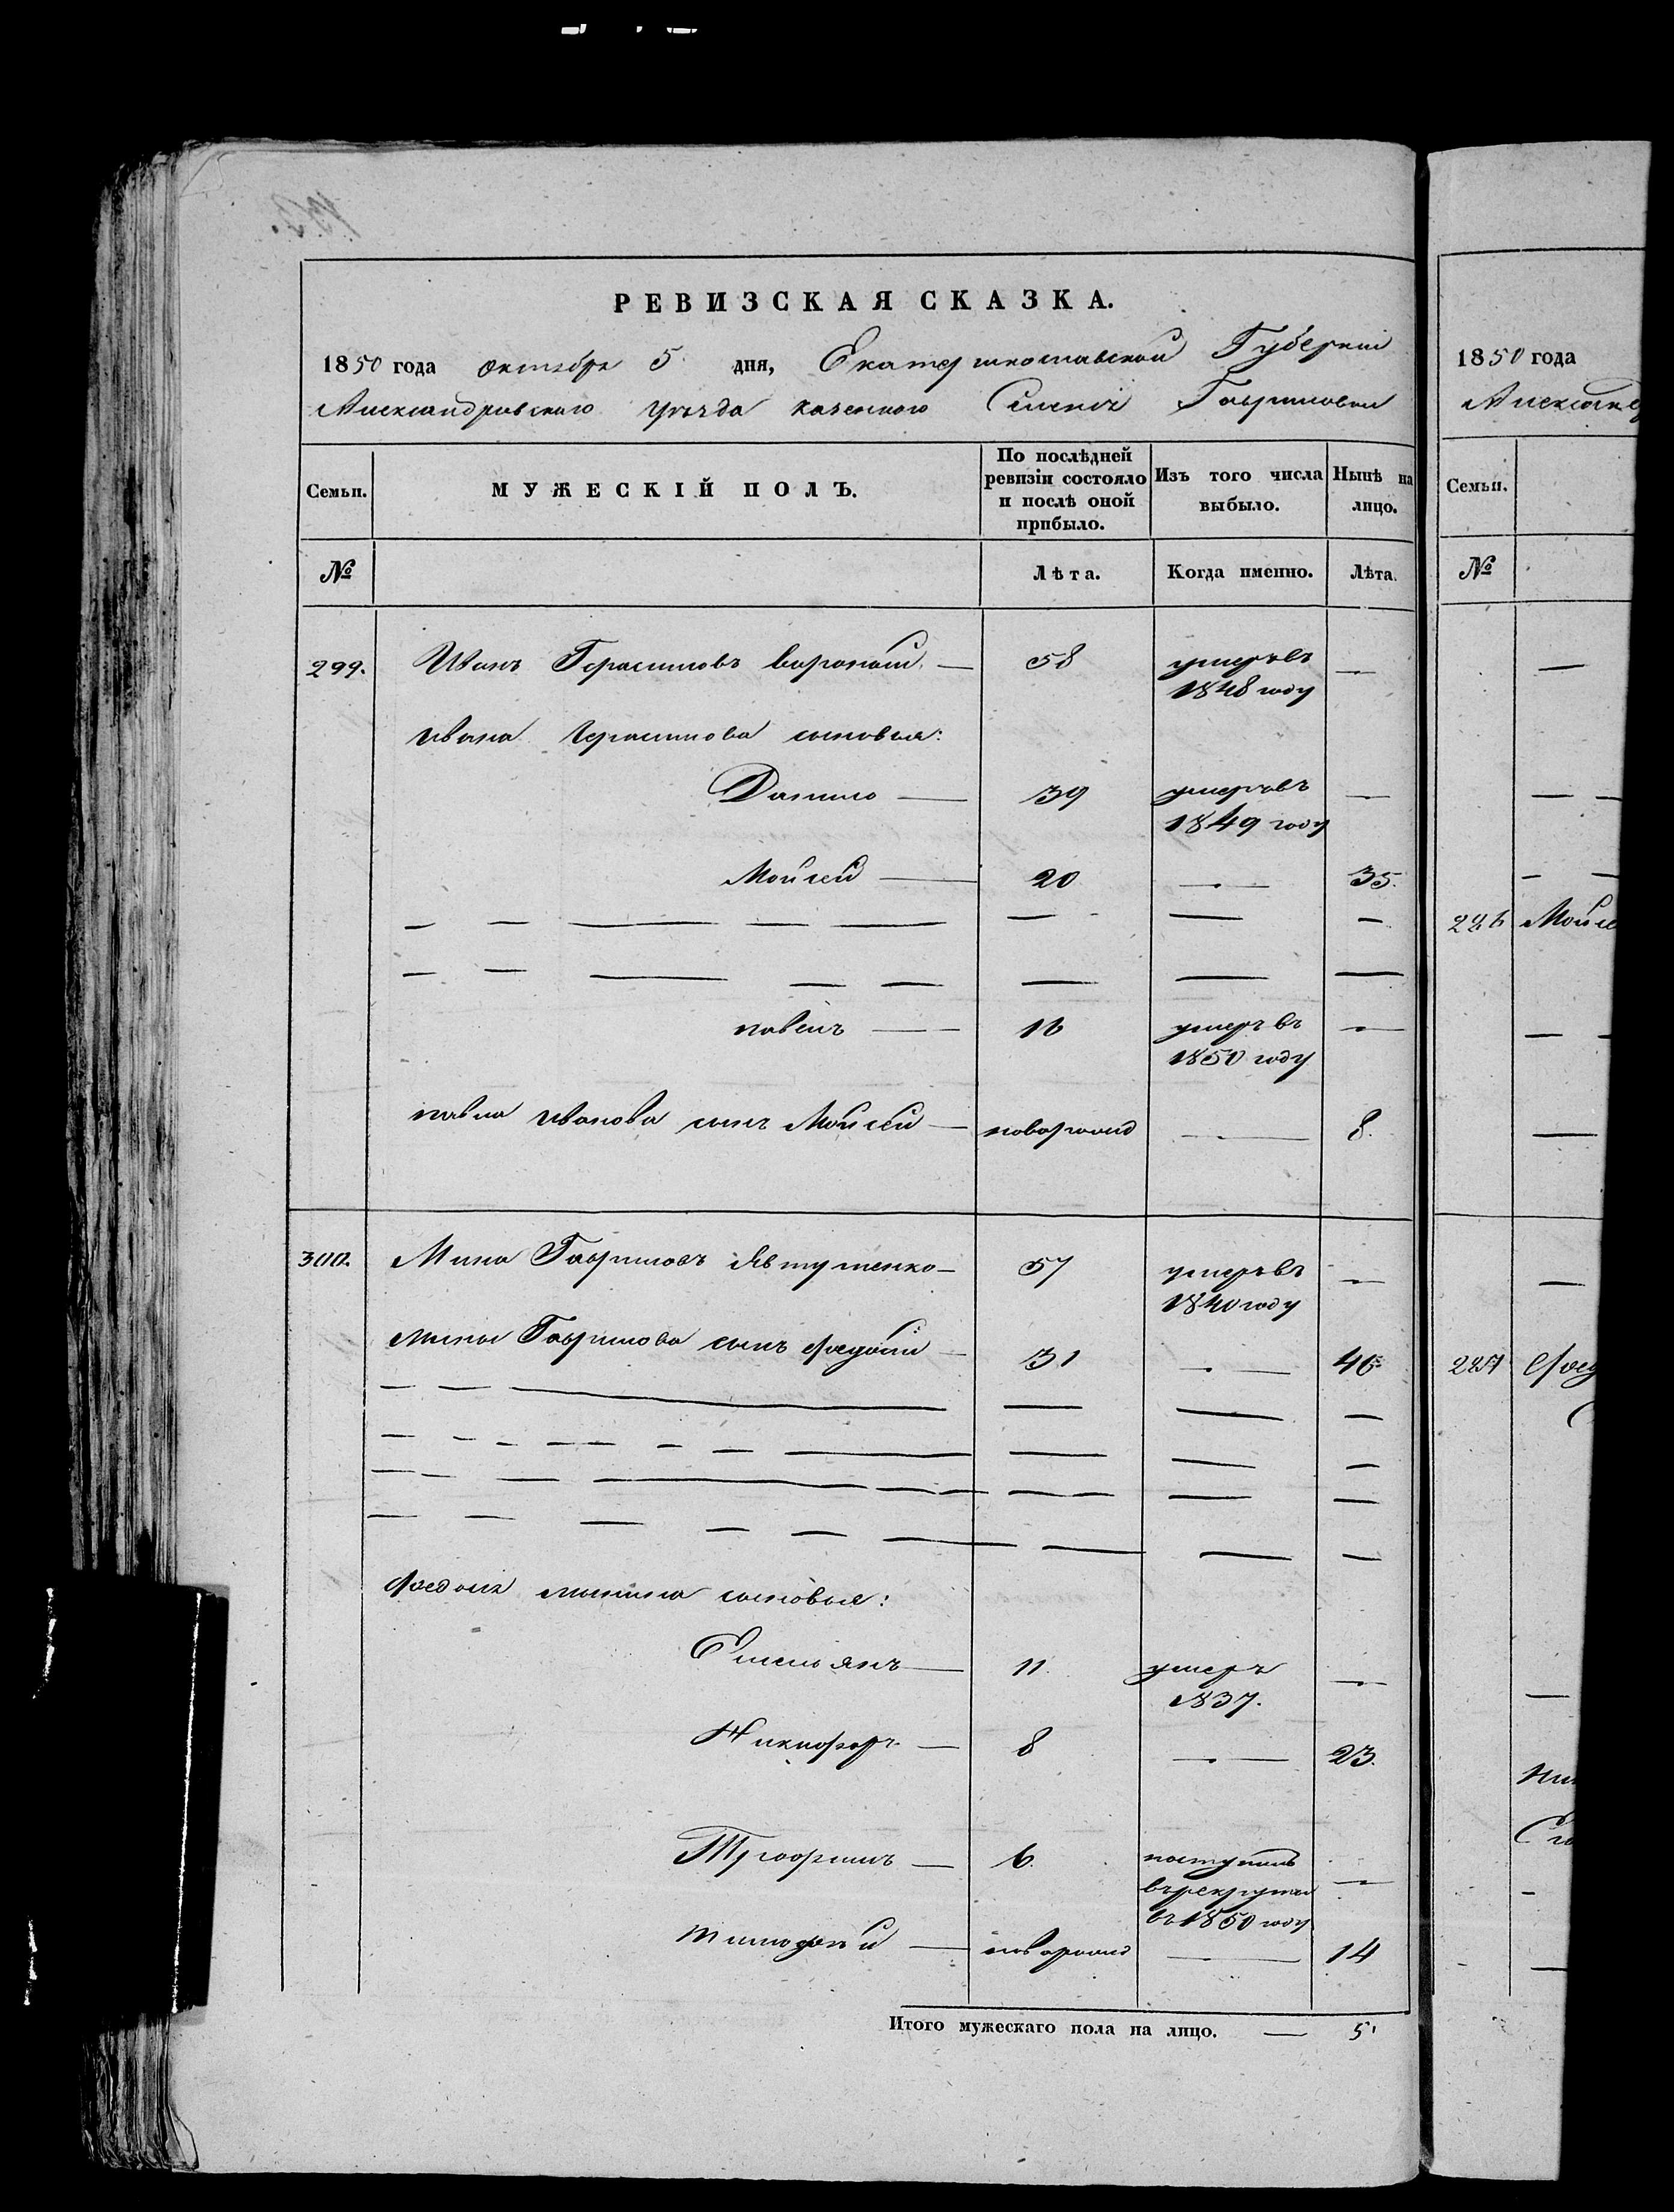 РЕВИЗСКАЯ СКАЗКА.
1850 года октября 5 дня, Екатеринославской Губернии
Александровского уезда казенного Селенія Гавриловки
Семьи. МУЖЕСКІЙ ПОЛЪ. По послѣдней ревизіи состояло и послѣ оной прибыло. Изъ того числа выбыло. Нынѣ на лицо.
№ Лѣта. Когда именно. Лѣта.
299. Иванъ Герасимовъ 58 умеръ въ —
1848 году
Ивана Герасимова сыновья:
Данило — 39 умеръ въ —
1849 году
Мойсей — 20 — 35.
павелъ — 16 умеръ въ —
1850 году
павла Иванова сынъ Мойсей — новорожд — 8.
300. Мина Гавриловъ Явтушенко — 57 умеръ въ —
1840 году
мины Гаврилова сынъ Федосій — 31 — 46
Федосія минина сыновья:
Емельянъ — 11. умеръ —
1837.
Никифоръ — 8 — 23.
Трофимъ — 6. поступилъ —
въ рекруты
въ 1850 году
тимофей — новорожд — 14
Итого мужескаго пола на лицо. — 5
1850 года
Семьи.
№
226 Мойсе
227